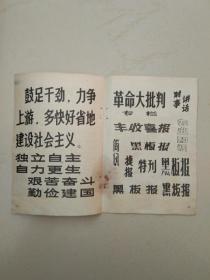 鼓足干劲，力争
上游，多快好省地
建设社会主义。
独立自主
自力更生
艰苦奋斗
勤俭建国
革命大批判
专栏
丰收喜报
简讯
黑板报
捷报
特刊
黑板报
黑板报
时事
讲话